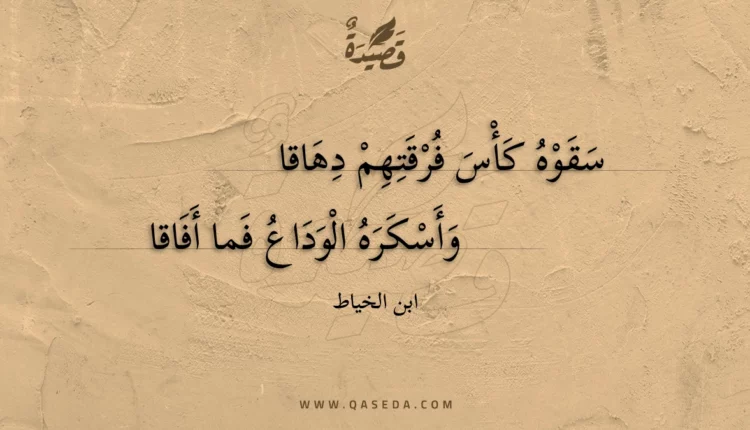 قَصِيْدَةٌ
سَقَوْهُ كَأْسَ فُرْقَتِهِمْ دِهَاقا
وَأَسْكَرَهُ الْوَدَاعُ فَما أَفَاقا
ابن الخياط
WWW.QASEDA.COM